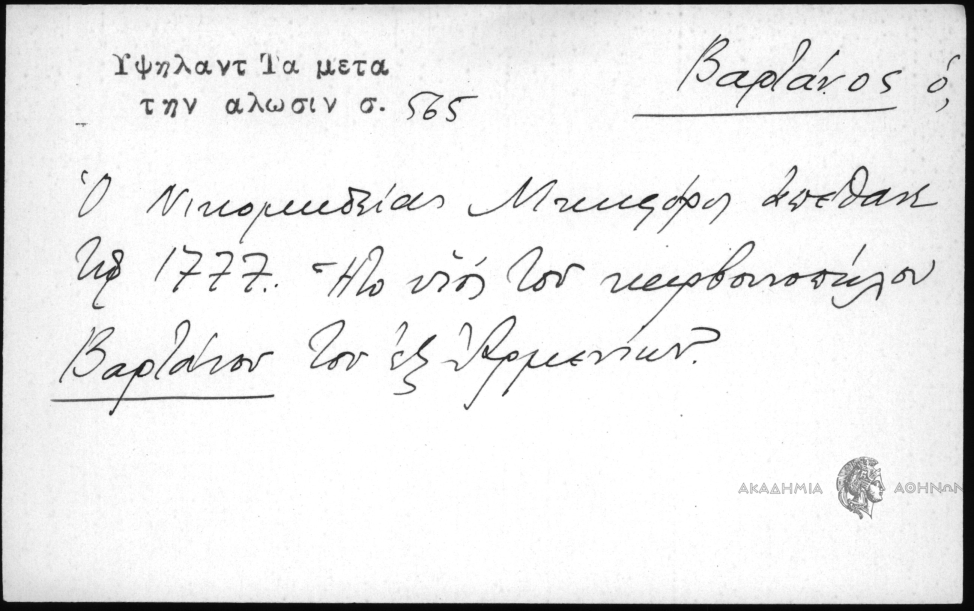 Υψηλαντ Τα μετα
την αλωσιν σ. 565
Βαρτάνος ὁ,
Ὁ Νικομηδείας Νικηφόρος ἀπέθανε
τῷ 1777. Ἦτο υἱός του καρβουνοπώλου
Βαρτάνου του ἐξ Ἀρμενίων.
ΑΚΑΔΗΜΙΑ ΑΘΗΝΩΝ